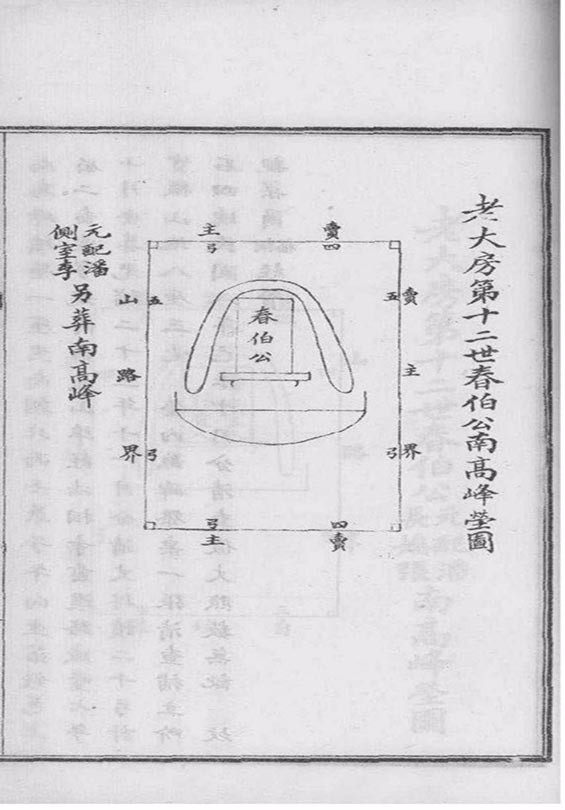 老大房第十二世春伯公南高峰塋圖
賣主
四弓
賣主界
五弓
春伯公
五弓
山路界
四弓
賣主
元配潘
側室李
另葬南高峰